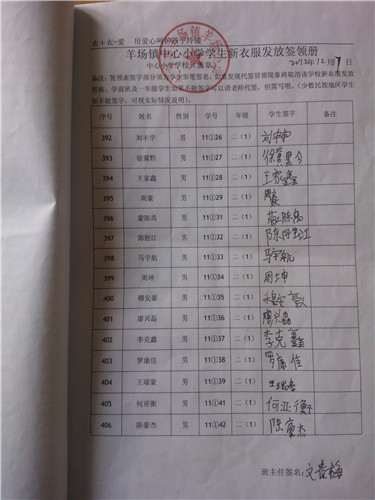 衣+衣=爱 用爱心呵护孩子
羊场镇中心小学学生新衣服发放签领册
中心小学学校(盖章) 2012年12月17日
备注:签领表签字部分须为学生亲笔签名,如果发现代签冒领现象将取消该学校新衣服发放
资格。学前班及一年级学生如果不能签字可以请老师代签,但需写明。(少数民族地区学生
如不能签字,可视实际情况说明)。
序号 姓名 性别 学号 年级 学生签字 备注
392 刘丰宇 男 11①26 二(1) 刘丰宇
393 徐黄黔 男 11①27 二(1) 徐黄黔
394 王家鑫 男 11①28 二(1) 王家鑫
395 周豪 男 11①29 二(1) 周豪
396 蒙陈禹 男 11①31 二(1) 蒙陈禹
397 陈恩江 男 11①32 二(1) 陈恩江
398 马宇航 男 11①33 二(1) 马宇航
399 周坤 男 11①34 二(1) 周坤
400 穆安豪 男 11①35 二(1) 穆安豪
401 廖兴磊 男 11①36 二(1) 廖兴磊
402 李克鑫 男 11①37 二(1) 李克鑫
403 罗康佳 男 11①38 二(1) 罗康佳
404 王瑞豪 男 11①39 二(1) 王瑞豪
405 何亚衡 男 11①41 二(1) 何亚衡
406 陈豪杰 男 11①42 二(1) 陈豪杰
班主任签名:文贵梅